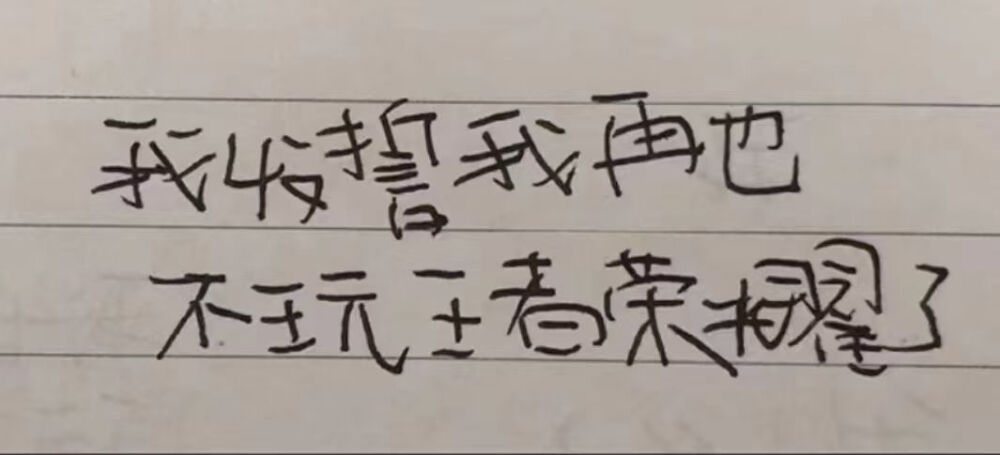 我发誓我再也
不玩王者荣耀了